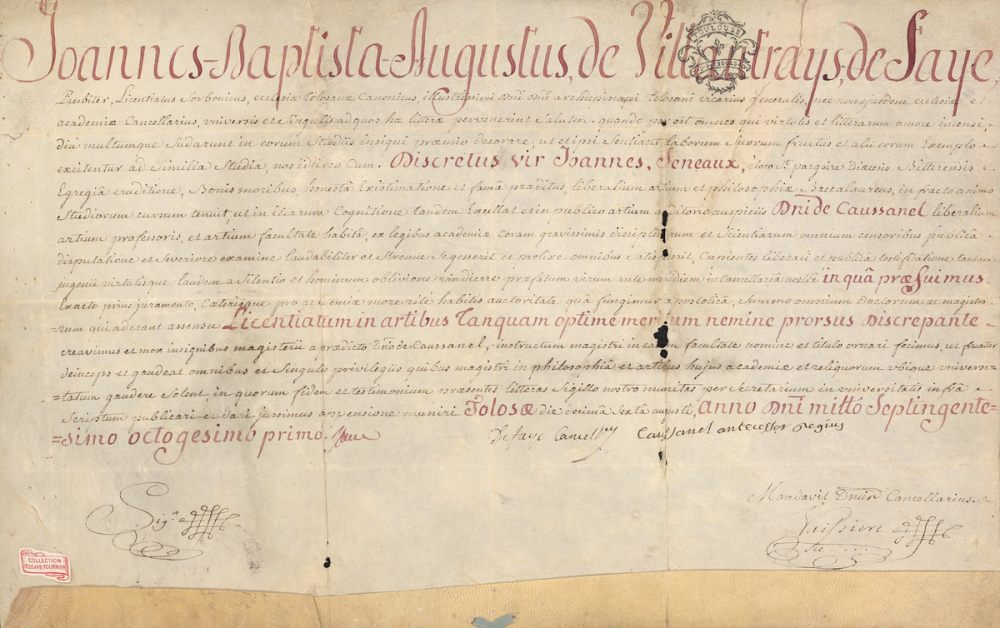 Joannes-Baptista-Augustus, de Villantrays, de Faye,
Presbiter, Licentiatus Sorbonicus, ecclesiæ Tolosanæ Canonicus, illustrissimi dni dni archiepiscopi Tolosani vicarius generalis, nec non ejusdem ecclesiæ et
academiæ Cancellarius, universis et Singulis ad quos hæ litteræ pervenerint Salutem quando par est omnes qui virtutis et litterarum amore incensi,
diu multumque Sudarunt in eorum Studiis insigni præmio decorare, ut et ipsi Sentiant laborum Suorum fructus et alii eorum Exemplo
excitentur ad Similia Studia, nos idcirco Cum. Discretus vir Joannes, Seneaux, Diœcesis Bitterensis
Egregiâ eruditione, Bonis moribus, honestâ Existimatione et famâ præditus, liberalium artium et philosophiæ Baccalaureus, infracto animo
Studiorum cursum tenuit, ut in illarum Cognitione tandem Excellat et in publico artium auditorio auspiciis Dni de Caussanel liberalium
artium professoris, et artium facultate habitâ; ex legibus academiæ coram gravissimis disciplinarum et Scientiarum omnium censoribus publicâ
disputatione et Severiore examine laudabiliter et Strenue Se gesserit et prolixe omnibus Satisfecerit, Cupientes liberali et publicâ testificatione tantam
ingenii virtutisque laudem a Silentio et hominum oblivione vindicare; præfatum virum ante meridiem in Cancellariâ nostrâ in quâ præfuimus
Exacto prius juramento, Cæterisque pro academiæ more rite habitis auctoritate quâ fungimur apostolicâ, Summo omnium Doctorum ac magistro-
=rum qui aderant assensu Licentiatum in artibus Tanquam optime meritum nemine prorsus Discrepante
creavimus et mox insignibus magisterii a prædicto Dno de Caussanel, instructum magistri in eadem facultate nomine et titulo ornari fecimus, ut fruatur
deinceps et gaudeat omnibus et Singulis privilegiis quibus magistri in philosophiâ et artibus hujus academiæ et reliquorum ubique universi-
=tatum gaudere Solent, in quorum fidem et testimonium præsentes litteras Sigillo nostro munitas per Secretarium universitatis infrâ
Scriptum publicari et dari jussimus appensione muniri Tolosæ die decima Sexta augusti, anno Dni mill͞o Septingente-
=simo octogesimo primo.
Defaye Cancell^us
Caussanel antecessor Regius
Mandavit Dnûm Cancellarius.
Sig.
Vaissiere
Sec
TOULOUSE
COLLECTION
EDGARD FOURNIER